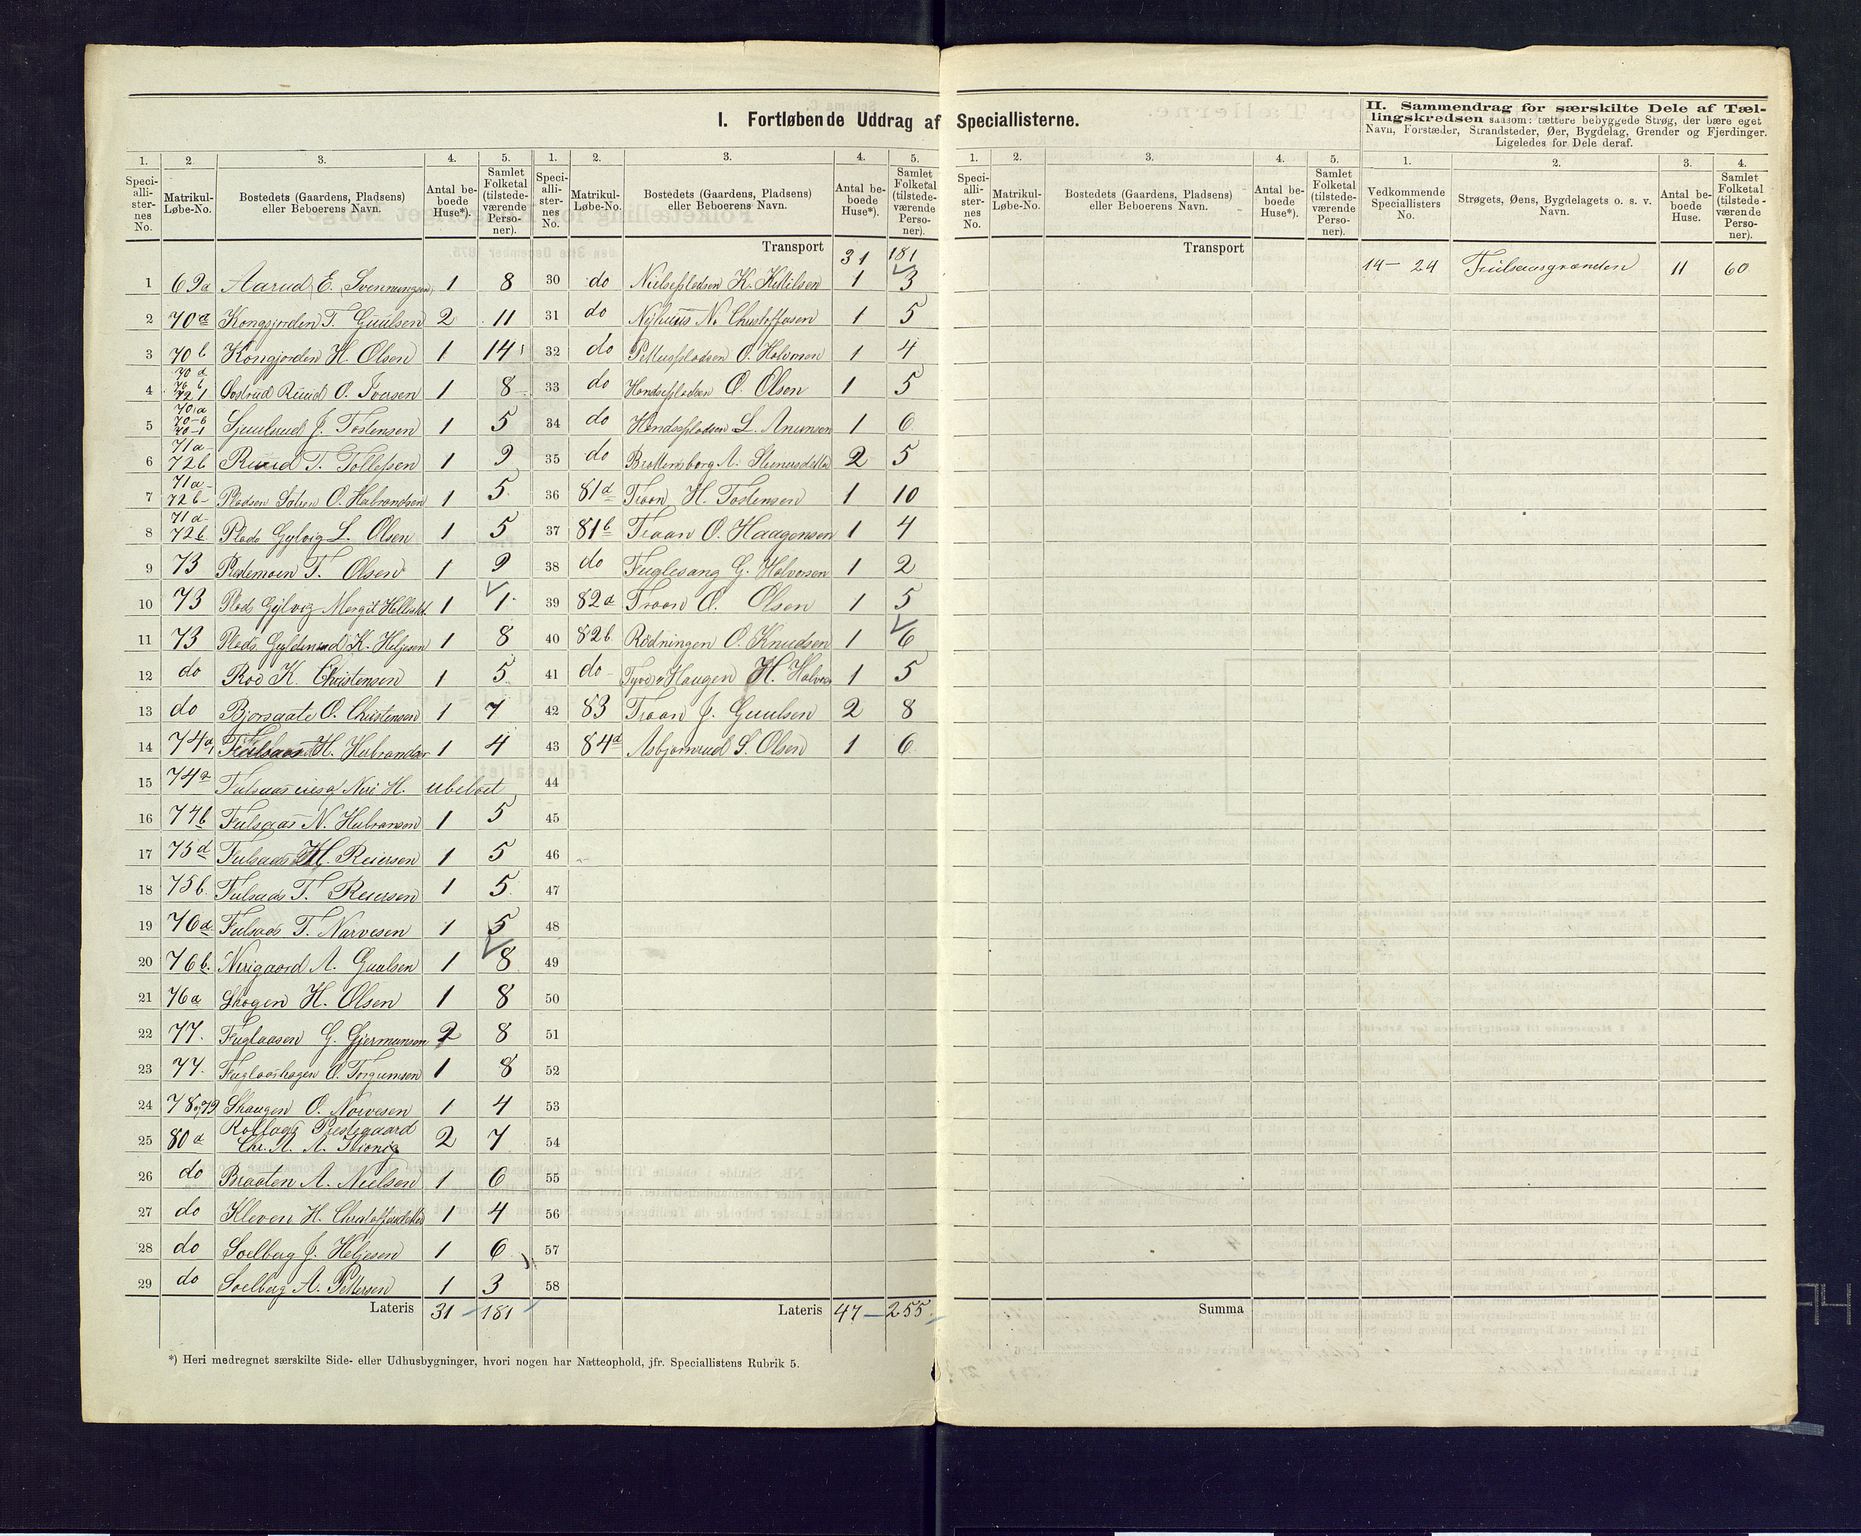 I. Fortløbende Uddrag af Speciallisterne.
II. Sammendrag for særskilte Dele af Tæl-
lingskredsen saasom: tættere bebyggede Strøg, der bære eget
Navn, Forstæder, Strandsteder, Øer, Bygdelag, Grender og Fjerdinger.
Ligeledes for Dele deraf.
1. 2. 3. 4. 5. 1. 2. 3. 4. 5. 1. 2. 3. 4. 5. 1. 2. 3. 4.
Speci-alli-ster-nes No. Matrikul-Løbe-No. Bostedets (Gaardens, Pladsens) eller Beboerens Navn. Antal be-boede Huse*). Samlet Folketal (tilstede-værende Perso-ner).
Speci-alli-ster-nes No. Matrikul-Løbe-No. Bostedets (Gaardens, Pladsens) eller Beboerens Navn. Antal be-boede Huse*). Samlet Folketal (tilstede-værende Perso-ner).
Speci-alli-ster-nes No. Matrikul-Løbe-No. Bostedets (Gaardens, Pladsens) eller Beboerens Navn. Antal be-boede Huse*). Samlet Folketal (tilstede-værende Perso-ner).
Vedkommende Speciallisters No. Strøgets, Øens, Bygdelagets o. s. v. Navn. Antal be-boede Huse. Samlet Folketal (tilstede-værende Perso-ner).
1 69a Aarud E. Svenningsen 1 8
2 70a Kongsjorden T. Guulsen 2 11
3 70b Kongjorden H. Olsen 1 14
4 Ruud O. Iversen 1 8
5 J. Tostensen 1 5
6 71a 72b Ruud T. Tollefsen 1 9
7 71a 72b Pladsen O. Halvrandsen 1 5
8 71a 72b Plads Gylvig L. Olsen 1 5
9 73 Pladsemoen T. Olsen 1 9
10 73 Plads Gylvig Margit 1 1
11 73 Plads K. Heljesen 1 8
12 do Roe K. Christensen 1 5
13 do Bjorsaate O. Christensen 1 7
14 74a Fulsaas H. 1 4
15 74a Fulsaas H. ubeboet
16 74b Fulsaas N. Hubransen 1 5
17 75a Fulsaas H. Reiersen 1 5
18 75b Fulsaas T. Reiersen 1 5
19 76a Fulsaas T. Narvesen 1 5
20 76b Nerigaard A. Guulsen 1 8
21 76a Skogen H. Olsen 1 8
22 77. Fuglaasen G. Gjermunsen 2 8
23 77. Fuglaashagen O. Torgumsen 1 8
24 78 79 Skaugen O. Narvesen 1 4
25 80a Rollags Prestegaard
Chr. A. A. 2 7
26 do Braaten A. Nielsen 1 6
27 do Kleven H. Christoffersdatter 1 4
28 do Soelberg J. Heljesen 1 6
29 do Soelberg A. Pettersen 1 3
Lateris 31 181
Transport 31 181
30 do Nielsepladsen K. Kittilsen 1 3
31 do Nyhuus N. Christoffersen 1 5
32 do Petterspladsen O. Halvorsen 1 4
33 do Handsepladsen O. Olsen 1 5
34 do Handsepladsen L. Anunsen 1 6
35 do Brattensborg A. Steinersdatter 2 5
36 81a Traan H. Tostensen 1 10
37 81b Traan O. Haagensen 1 4
38 do Fuglesang G. Halvorsen 1 2
39 82a Traan O. Olsen 1 5
40 82b Rødningen O. Knudsen 1 6
41 do Haugen H. Halvors 1 5
42 83 Traan J. Guulsen 2 8
43 84a Asbjørnrud S. Olsen 1 6
44
45
46
47
48
49
50
51
52
53
54
55
56
57
58
Lateris 47 255
Transport
Summa
14-24 Fulsaasgrænden 11 60
*) Heri medregnet særskilte Side- eller Udhusbygninger, hvori nogen har Natteophold, jfr. Speciallistens Rubrik 5.